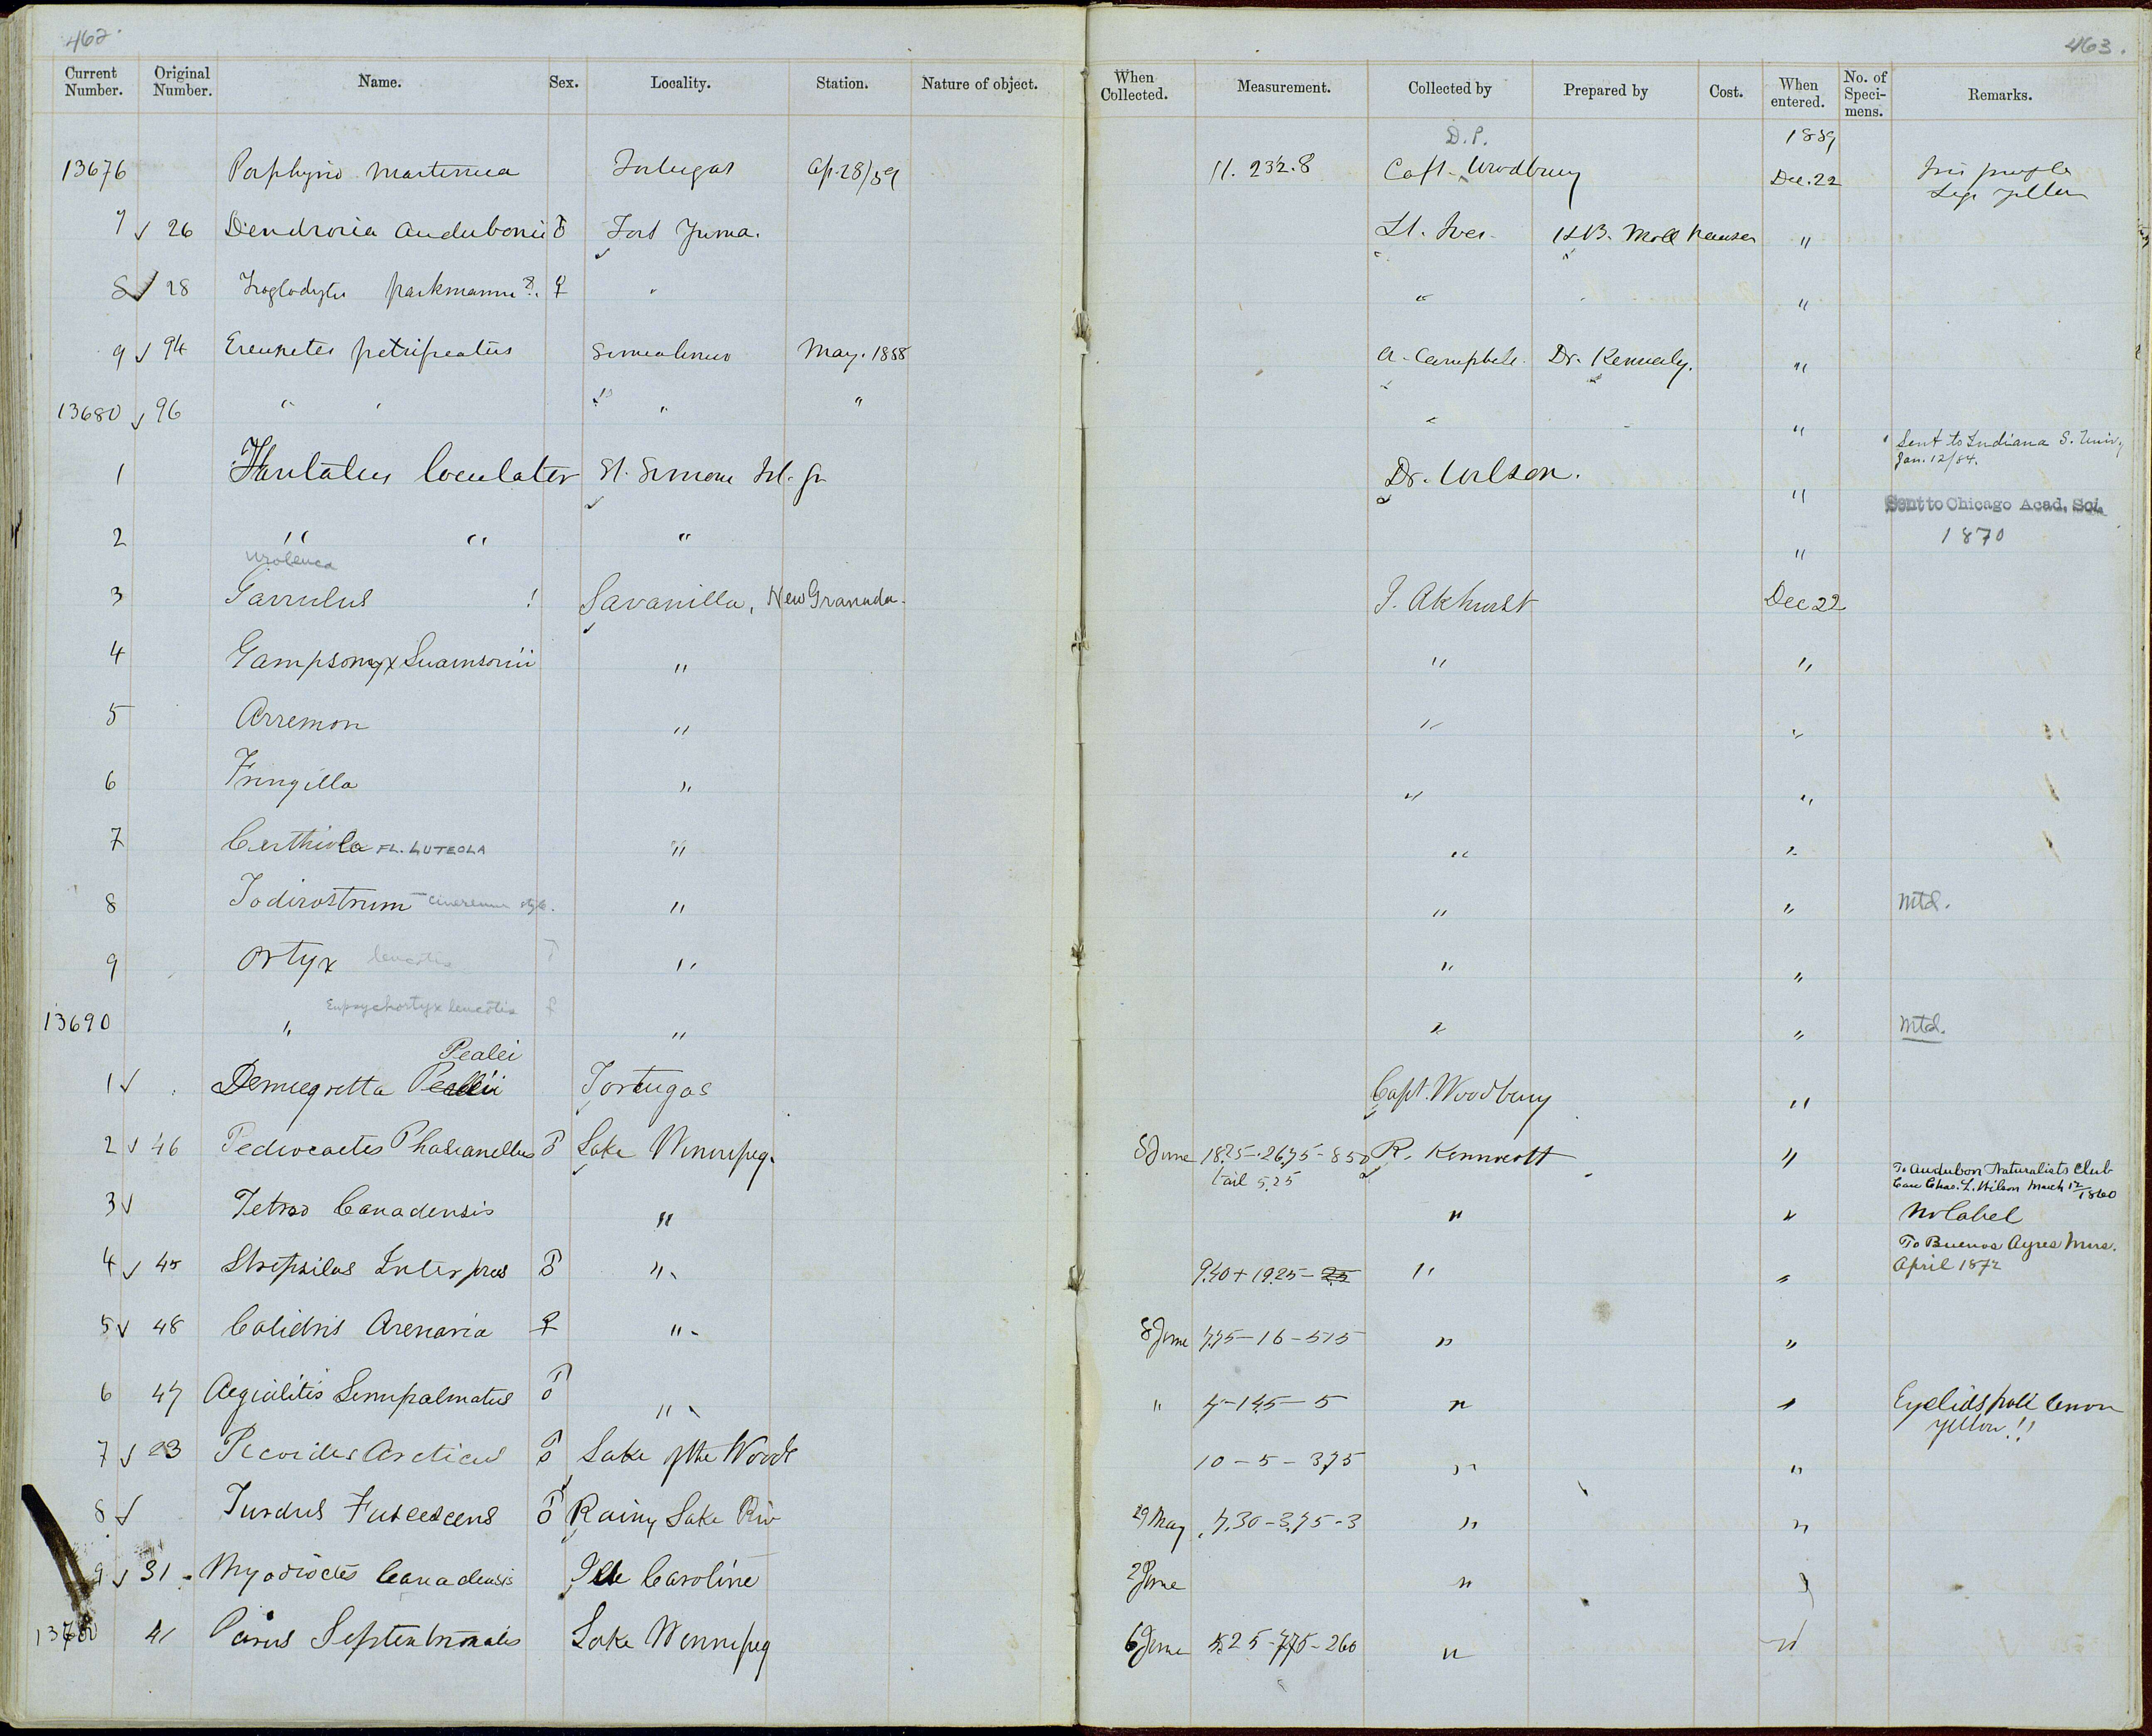 462.
463.
Current Number. Original Number. Name. Sex. Locality. Station. Nature of object. When Collected. Measurement. Collected by Prepared by Cost. When entered. No. of Speci- mens. Remarks.
D.P. 1859
13676 Porphyrio martinica Tortugas Ap. 28/59 11. 23½. 8 Capt. Woodbury Dec. 22 Iris purple
Legs yellow
7 √ 26 Dendroica Audubonii ♂ Fort Yuma. Lt. Ives. H.B. Moll hausen "
8 √ 28 Troglodytes parkmanni ?. ♀ " " "
9 √ 94 Ereunetes petrificatus Simiahmoo May. 1858 A. Campbell. Dr. Kennerly. "
13680 √ 96 " " " " " "
Sent to Indiana S. Univ,
Jan. 12/84.
1 Tantalus loculator St. Simons Isl. Ga Dr. Wilson. "
Sent to Chicago Acad. Sci.
1870
2 " " " "
Uroleuca
3 Garrulus ! Savanilla, New Granada. J. Akhurst Dec 22
4 Gampsonyx Swainsonii " " "
5 Arremon " " "
6 Fringilla " " "
7 Certhiola FL. LUTEOLA " " "
8 Todirostrum cinereum " " " Mtd.
9 Ortyx leucotis ♂ " " "
Eupsychortyx leucotis ♀
13690 " " " " Mtd.
Pealei
1 √ Demiegretta Pealii Tortugas Capt. Woodbury "
2 √ 46 Pediocaetes Phasianellus ♂ Lake Winnipeg. 8 June 18.25-26.75-8.50 R. Kennicott "
tail 5.25
To Audubon Naturalists Club
Care Chas. L. Wilson March 12/1860
3 √ Tetrao Canadensis " " " No label
To Buenos Ayres Mus.
April 1872
4 √ 45 Strepsilas Interpres ♂ " 9.40 + 19.25 - 25 " "
5 √ 48 Calidris Arenaria ♀ " 8 June 7.75-16-5.15 " "
6 47 Aegialitis Semipalmatus ♂ " " 7-14.5-5 " " Eyelids pale lemon
yellow!!
7 √ 23 Picoides Arcticus ♂ Lake of the Woods 10-5-3.75 " "
8 √ Turdus Fuscescens ♂ Rainy Lake Riv 29 May 7.30-3.75-3 " "
9 √ 31 Myodioctes Canadensis Ile Caroline 2 June " "
13700 41 Parus Septentrionalis Lake Winnipeg 6 June 5.25-7.75-2.60 " "